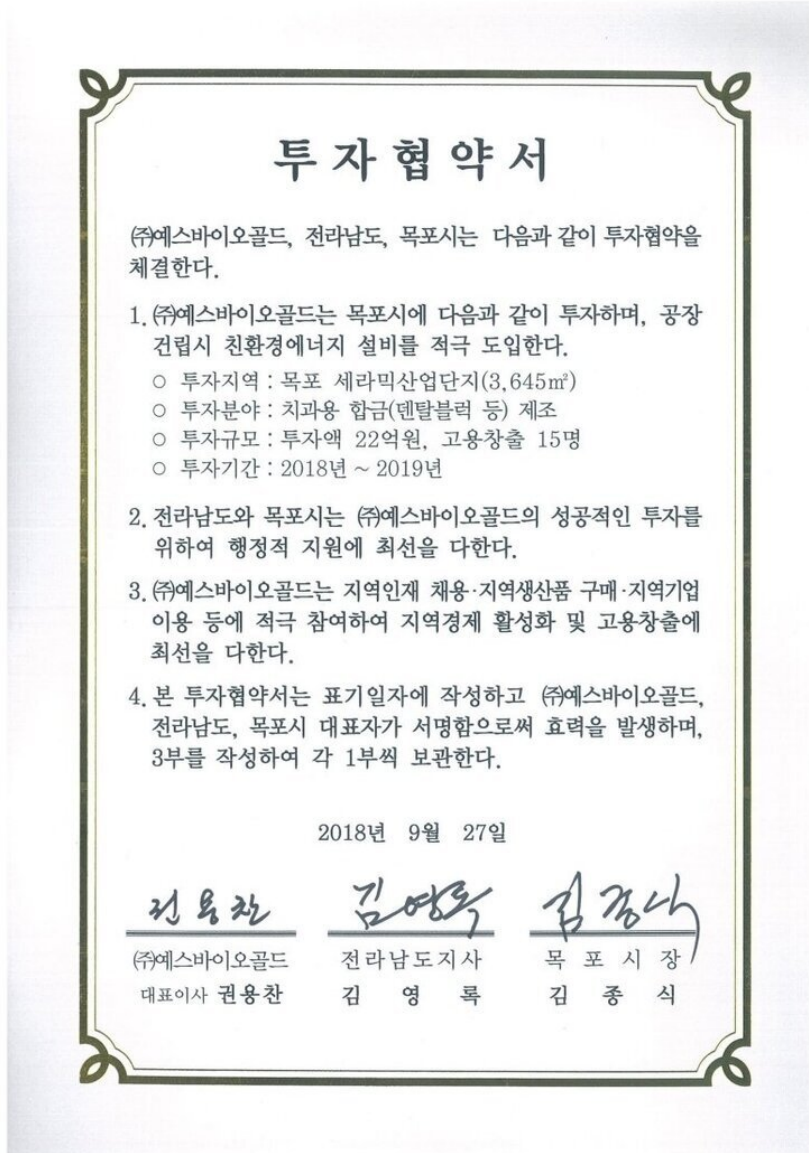 투자협약서
㈜예스바이오골드, 전라남도, 목포시는 다음과 같이 투자협약을
체결한다.
1. ㈜예스바이오골드는 목포시에 다음과 같이 투자하며, 공장
건립시 친환경에너지 설비를 적극 도입한다.
○ 투자지역 : 목포 세라믹산업단지(3,645㎡)
○ 투자분야 : 치과용 합금(덴탈블럭 등) 제조
○ 투자규모 : 투자액 22억원, 고용창출 15명
○ 투자기간 : 2018년 ~ 2019년
2. 전라남도와 목포시는 ㈜예스바이오골드의 성공적인 투자를
위하여 행정적 지원에 최선을 다한다.
3. ㈜예스바이오골드는 지역인재 채용·지역생산품 구매·지역기업
이용 등에 적극 참여하여 지역경제 활성화 및 고용창출에
최선을 다한다.
4. 본 투자협약서는 표기일자에 작성하고 ㈜예스바이오골드,
전라남도, 목포시 대표자가 서명함으로써 효력을 발생하며,
3부를 작성하여 각 1부씩 보관한다.
2018년 9월 27일
권용찬 김영록 김종식
㈜예스바이오골드 전라남도지사 목포시장
대표이사 권용찬 김영록 김종식